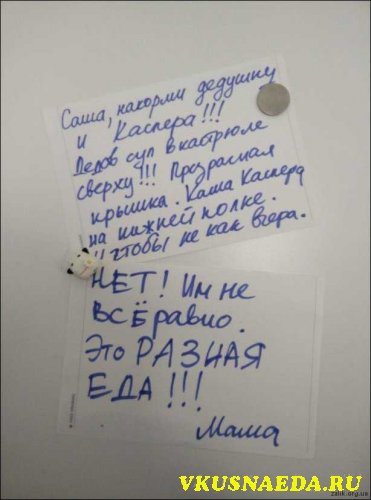 Саша, накорми дедушку
и Каспера!!!
Дедов суп в кастрюле
сверху!!! Прозрачная
крышка. Каша Каспера
на нижней полке.
И чтобы не как вчера.
НЕТ! Им не
ВСЁ равно.
Это РАЗНАЯ
ЕДА!!!
Мама
VKUSNAEDA.RU
zalik.org.ua